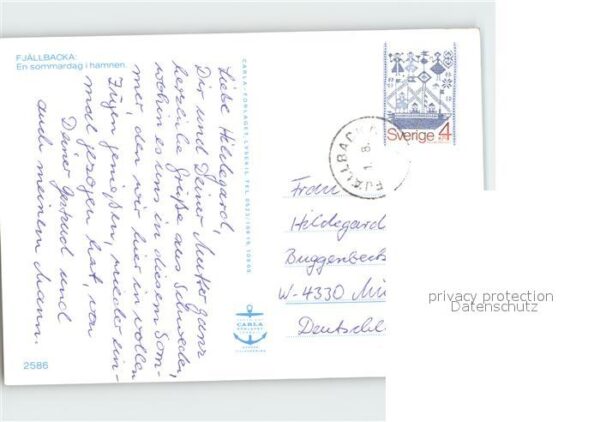 FJÄLLBACKA:
En sommardag i hamnen.
Liebe Hildegard,
Dir und Deiner Mutter ganz
herzliche Grüße aus Schweden,
wohin es uns in diesem Som-
mer, den wir hier in vollen
Zügen genießen, wieder ein-
mal gezogen hat, von
Deiner Gertrud und
auch meinem Mann.
2586
CARLA-FÖRLAGET, LYSEKIL TEL. 0523/
CARLA
FÖRLAGET
LYSEKIL
Sverige 4
FJÄLLBACKA
1.8.
Frau
Hildegard
Buggenbeck
W-4330 Mü
Deutschl
privacy protection
Datenschutz